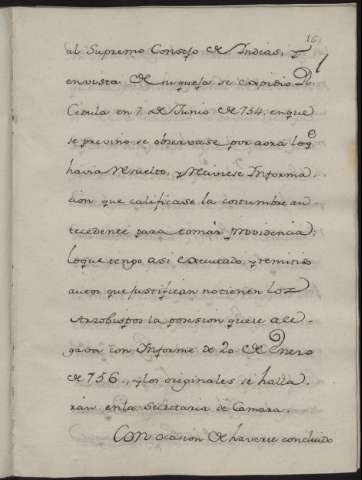 161
al Supremo Consejo de Indias, y
en vista de su quexa se expidio Rl.
Cedula en 7. de Junio de 754. en que
se previno se observase por aora lo q.e
havia resuelto, y Informa
cion que calificase la costumbre an
tecedente para tomar providencia;
lo que tengo asi executado, y remiti
autos que justifican no tienen los
Arzobispos la posesion que se ale
gava con Informe de 20 de Enero
de 756., y los originales se halla
rán en la Secretaria de Camara.
Con ocasion de haverse concluido